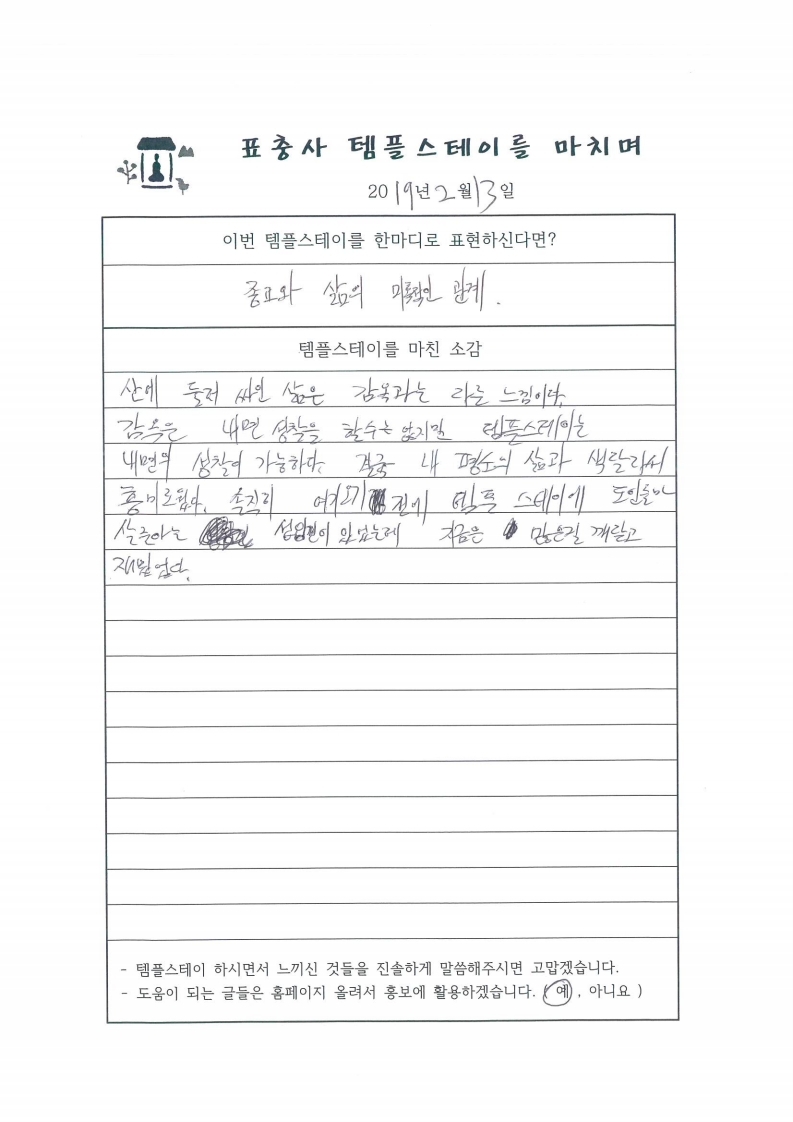 표충사 템플스테이를 마치며
2019년 2월 13일
이번 템플스테이를 한마디로 표현하신다면?
종교와 삶의 미륵적인 관계.
템플스테이를 마친 소감
산에 둘저 싸인 삶은 감옥과는 다른 느낌이다.
감옥은 내면 성찰을 할수는 없지만 템플스테이는
내면의 성찰이 가능하다. 결국 내 평소의 삶과 색달라서
흥미로웠다. 솔직히 여기오기 전에 템플 스테이에
살 선입견이 있었는데 지금은 많은걸 깨닫고
재밌었다.
- 템플스테이 하시면서 느끼신 것들을 진솔하게 말씀해주시면 고맙겠습니다.
- 도움이 되는 글들은 홈페이지 올려서 홍보에 활용하겠습니다. ( 예 , 아니요 )